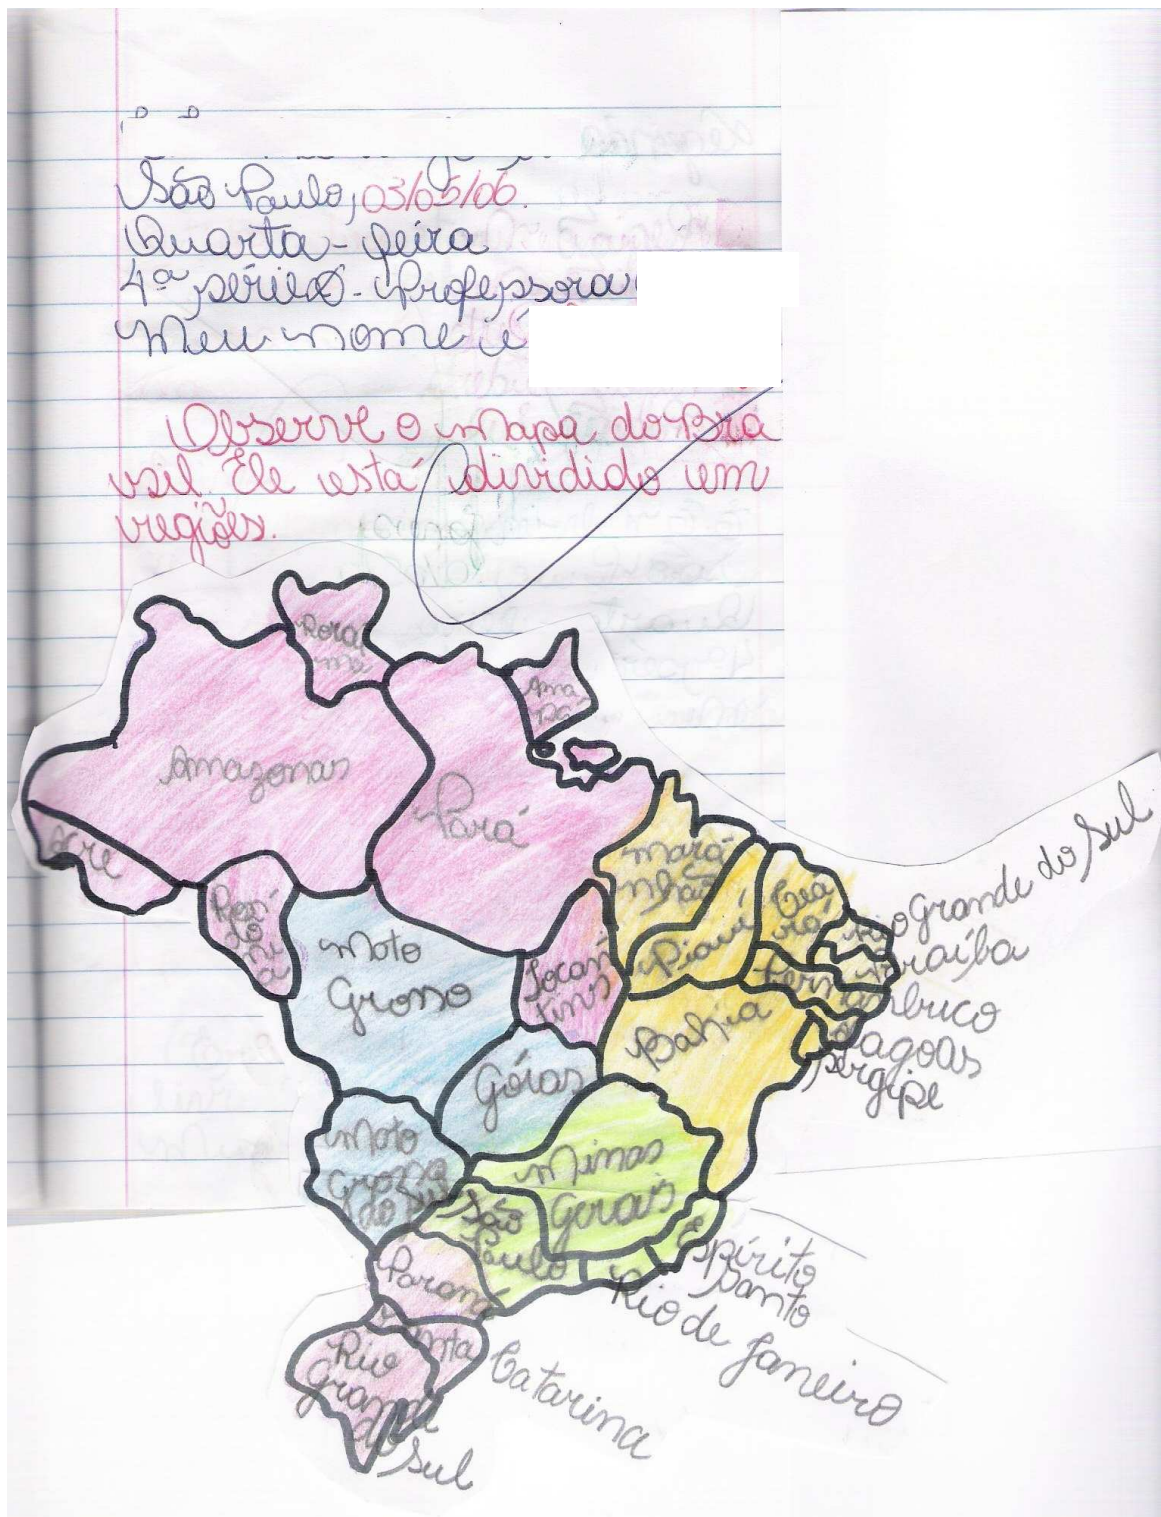 São Paulo, 03/05/06.
Quarta-feira
4ª série - Professora
Meu nome é
Observe o mapa do Bra
sil. Ele está dividido em
regiões.
Rora
ma
Ama
pá
Amazonas
Pará
Acre
Mara
nhão
Piauí
Cea
rá
Rio Grande do Sul
Paraíba
Pernambuco
Alagoas
Sergipe
Ron
dô
ni
a
Mato
Grosso
Tocan
tins
Bahia
Góias
Mato
Grosso
do Sul
Minas
Gerais
São
Paulo
Espírito
Santo
Rio de Janeiro
Paraná
Santa
Catarina
Rio
Grande
do
Sul